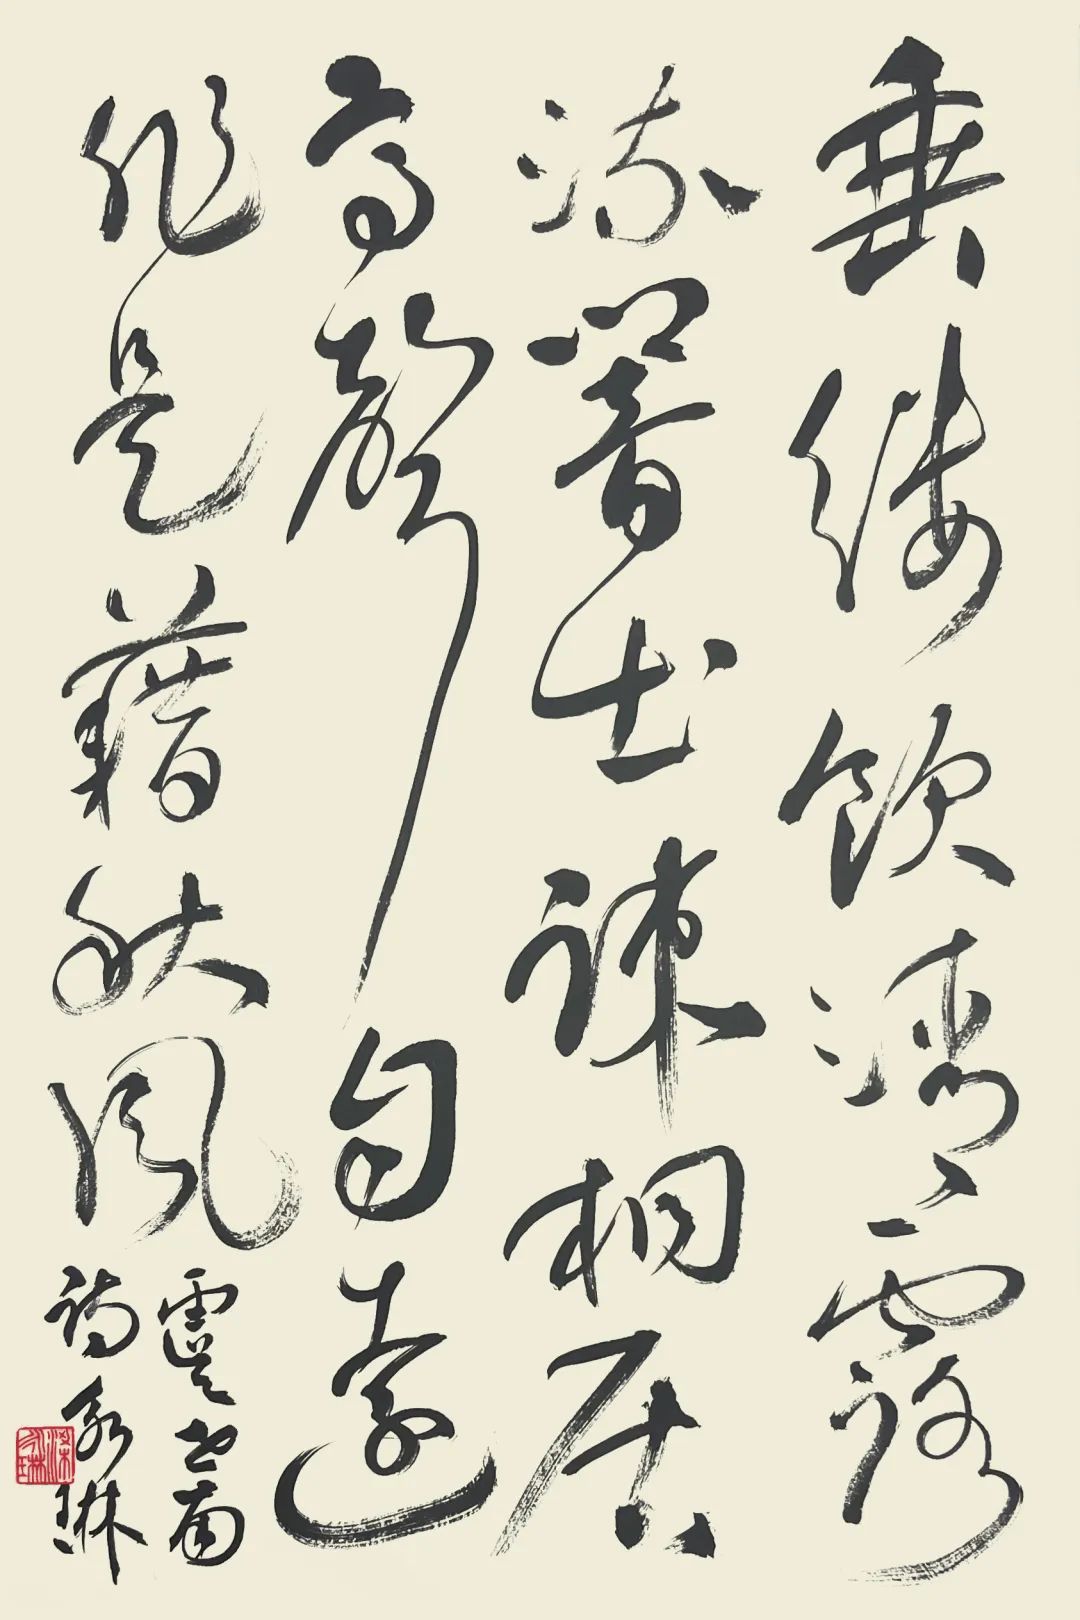 垂緌飲清露
流響出疎桐居
高聲自遠
非是藉秋風
虞世南
詩永琳
梁永琳